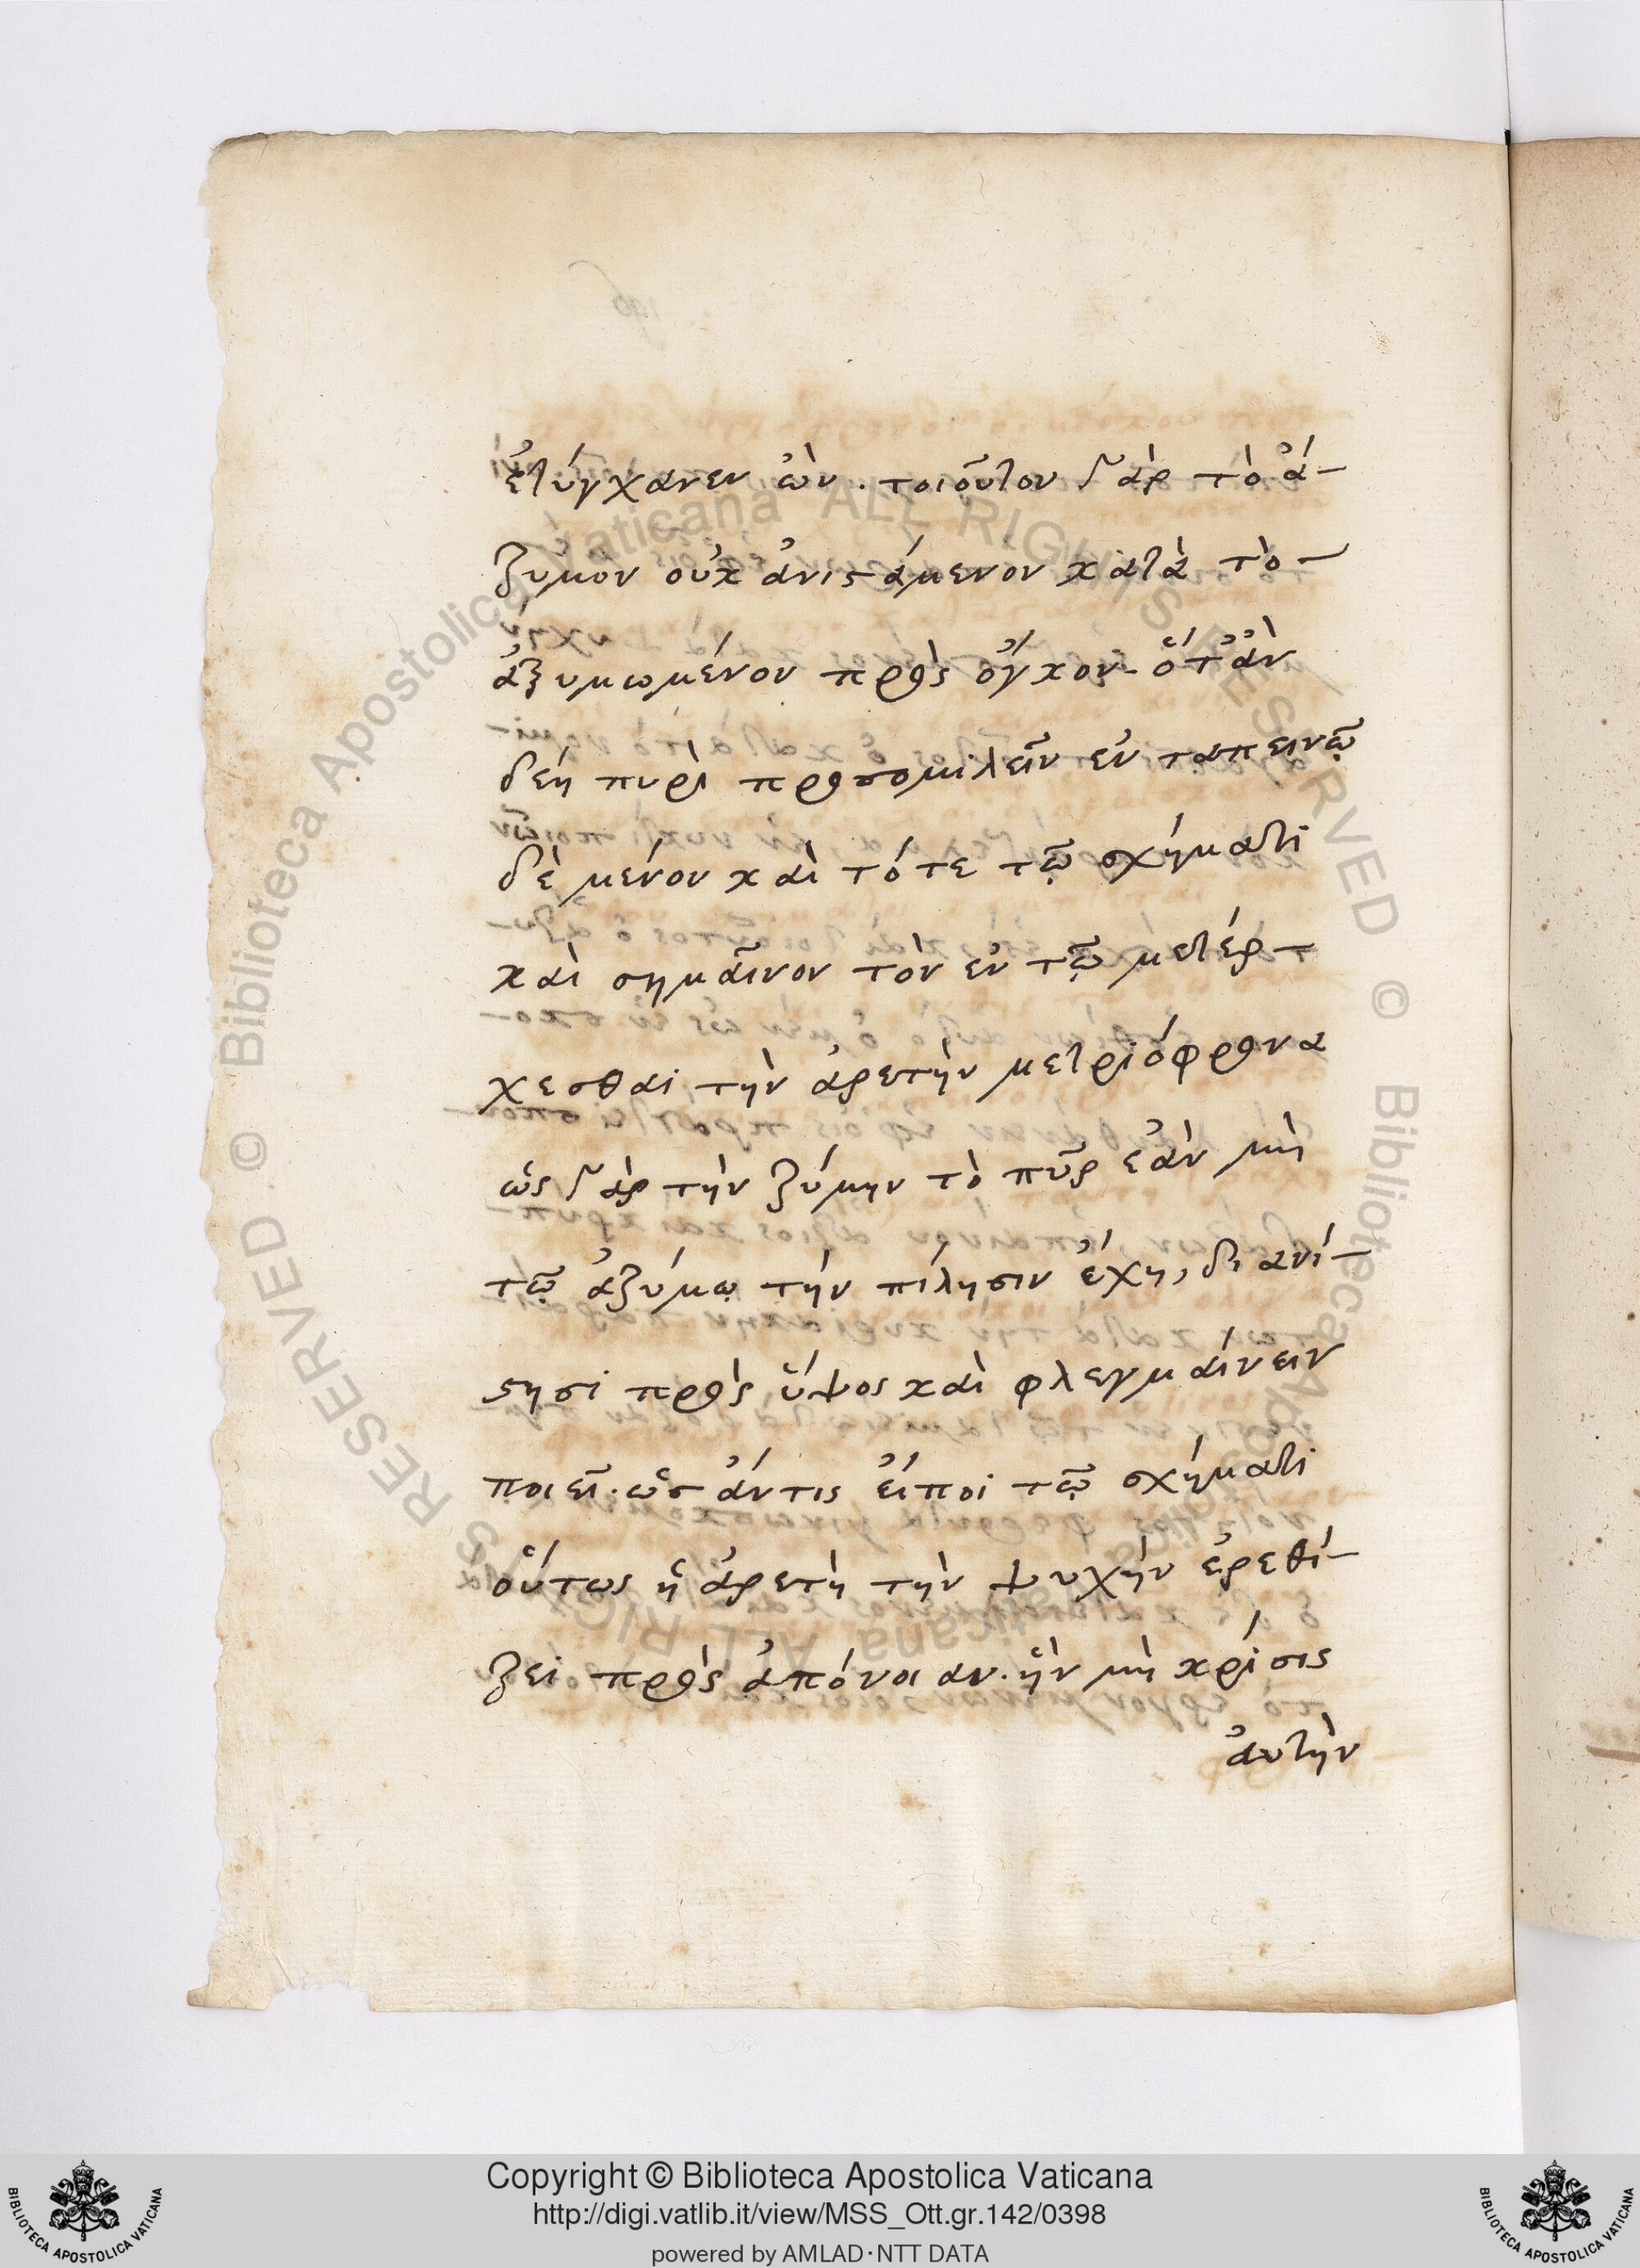 ἐτύγχανεν ὢν. τοιοῦτον γὰρ τὸ ἄ-
ζυμον οὐκ ἀνιστάμενον κατὰ τὸ-
ἀζυμωμένον πρὸς ὄγκον. ὅτ' ἂν
δέη πυρὶ προσομιλεῖν ἐν ταπεινῶ
δὲ μένον καὶ τότε τῶ σχήματι
καὶ σημαῖνον τὸν ἐν τῶ μετέρ-
χεσθαι τὴν ἀρετὴν μετριόφρονα
ὡς γὰρ τὴν ζύμην τὸ πῦρ ἐὰν μὴ
τῶ ἀζύμω τὴν πίλησιν ἔχη, διανί-
στησι πρὸς ὕψος καὶ φλεγμαίνειν
ποιεῖ. ὡς ἄν τις εἴποι τῶ σχήματι
οὕτως ἡ ἀρετὴ τὴν ψυχὴν ἐρεθί-
ζει πρὸς ἀπόνοιαν. ἣν μὴ κρίσις
αὐτὴν
© Biblioteca Apostolica Vaticana ALL RIGHTS RESERVED © Biblioteca Apostolica Vaticana ALL RIGHTS RESERVED
Copyright © Biblioteca Apostolica Vaticana
http://digi.vatlib.it/view/MSS_Ott.gr.142/0398
powered by AMLAD·NTT DATA
BIBLIOTECA APOSTOLICA VATICANA
BIBLIOTECA APOSTOLICA VATICANA